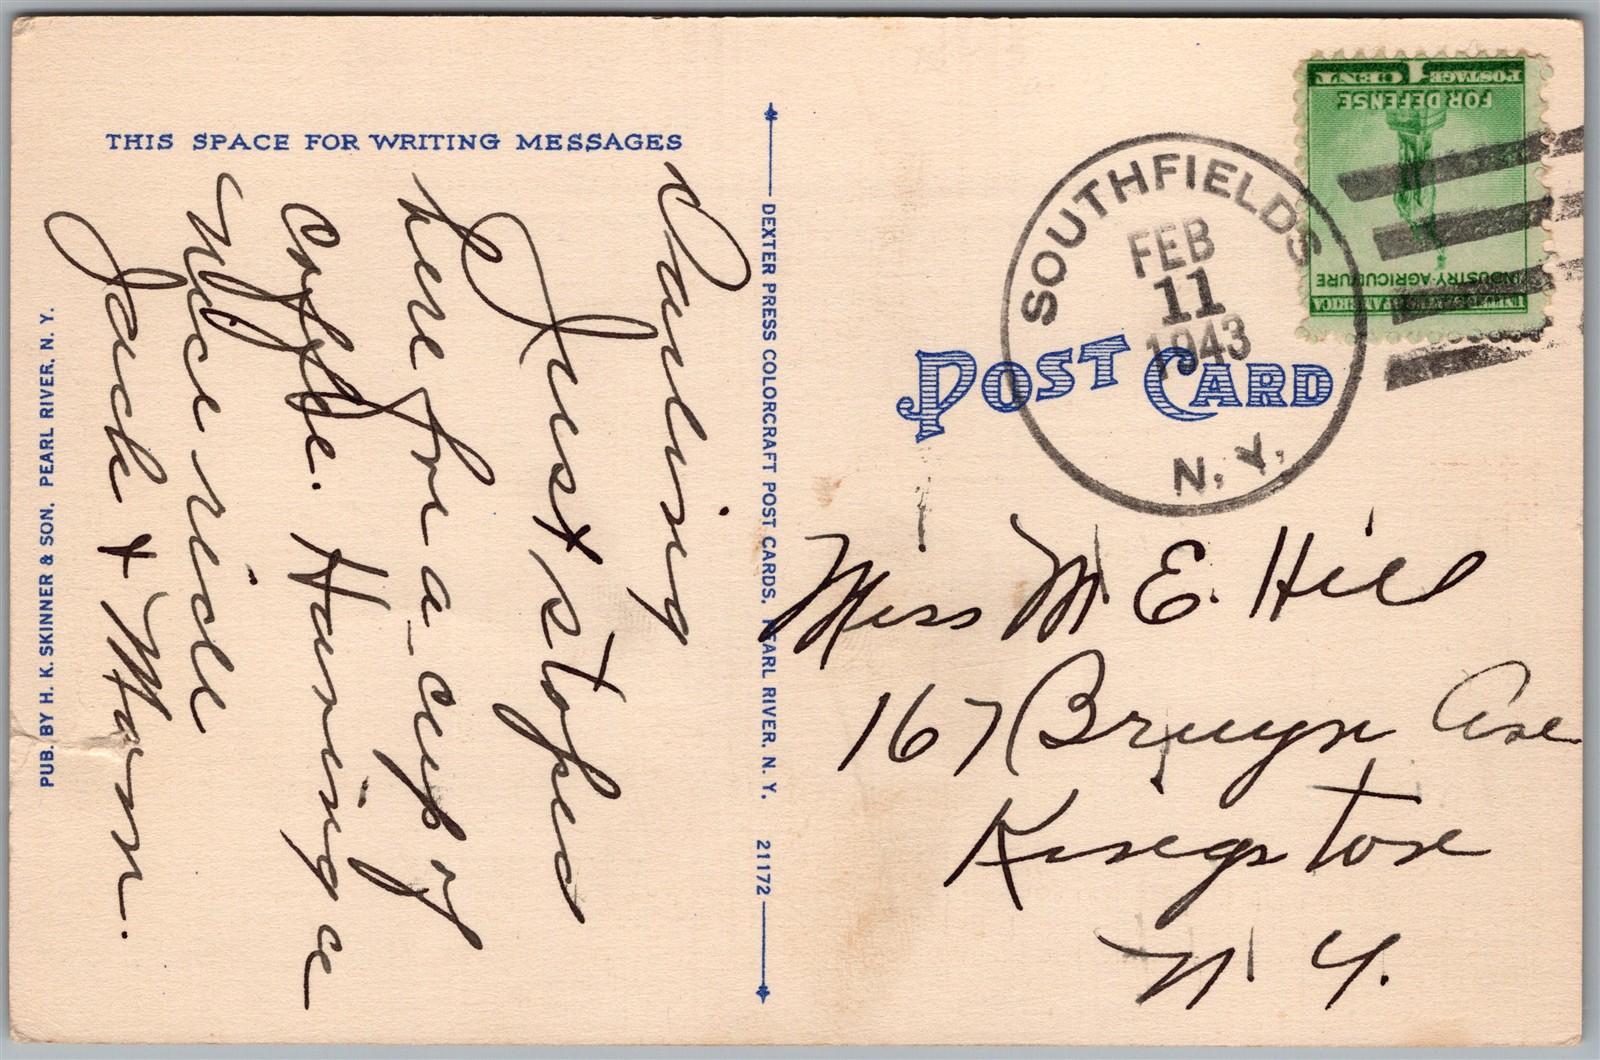 THIS SPACE FOR WRITING MESSAGES
Darling
Just stoped
here for a cup of
coffee. Having a
nice ride
Jack + Mom.
PUB. BY H. K. SKINNER & SON, PEARL RIVER, N. Y.
DEXTER PRESS COLORCRAFT POST CARDS, PEARL RIVER, N. Y. 21172
1 CENT 1 POSTAGE
FOR DEFENSE
INDUSTRY-AGRICULTURE
UNITED STATES OF AMERICA
SOUTHFIELDS
FEB
11
1943
N. Y.
POST CARD
Miss M. E. Hill
167 Bruyn Ave
Kingston
N. Y.